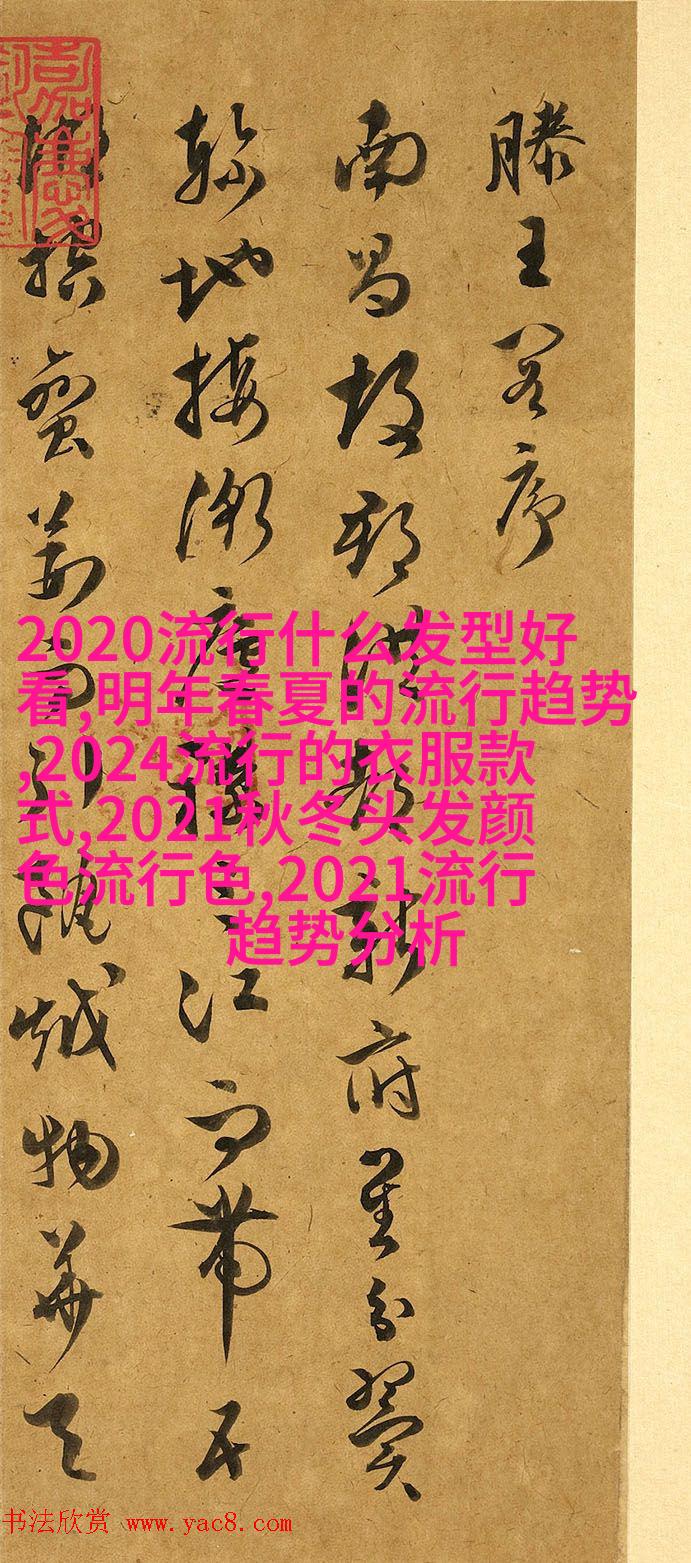 滕王閣序
南昌故郡洪都新府星分翼
軫地接衡廬襟三江而帶五
湖控蠻荊而引甌越物華天
2020流行什么发型好
看,明年春夏的流行趋势
,2024流行的衣服款
式,2021秋冬头发颜
色流行色,2021流行
趋势分析
书法欣赏 www.yac8.com